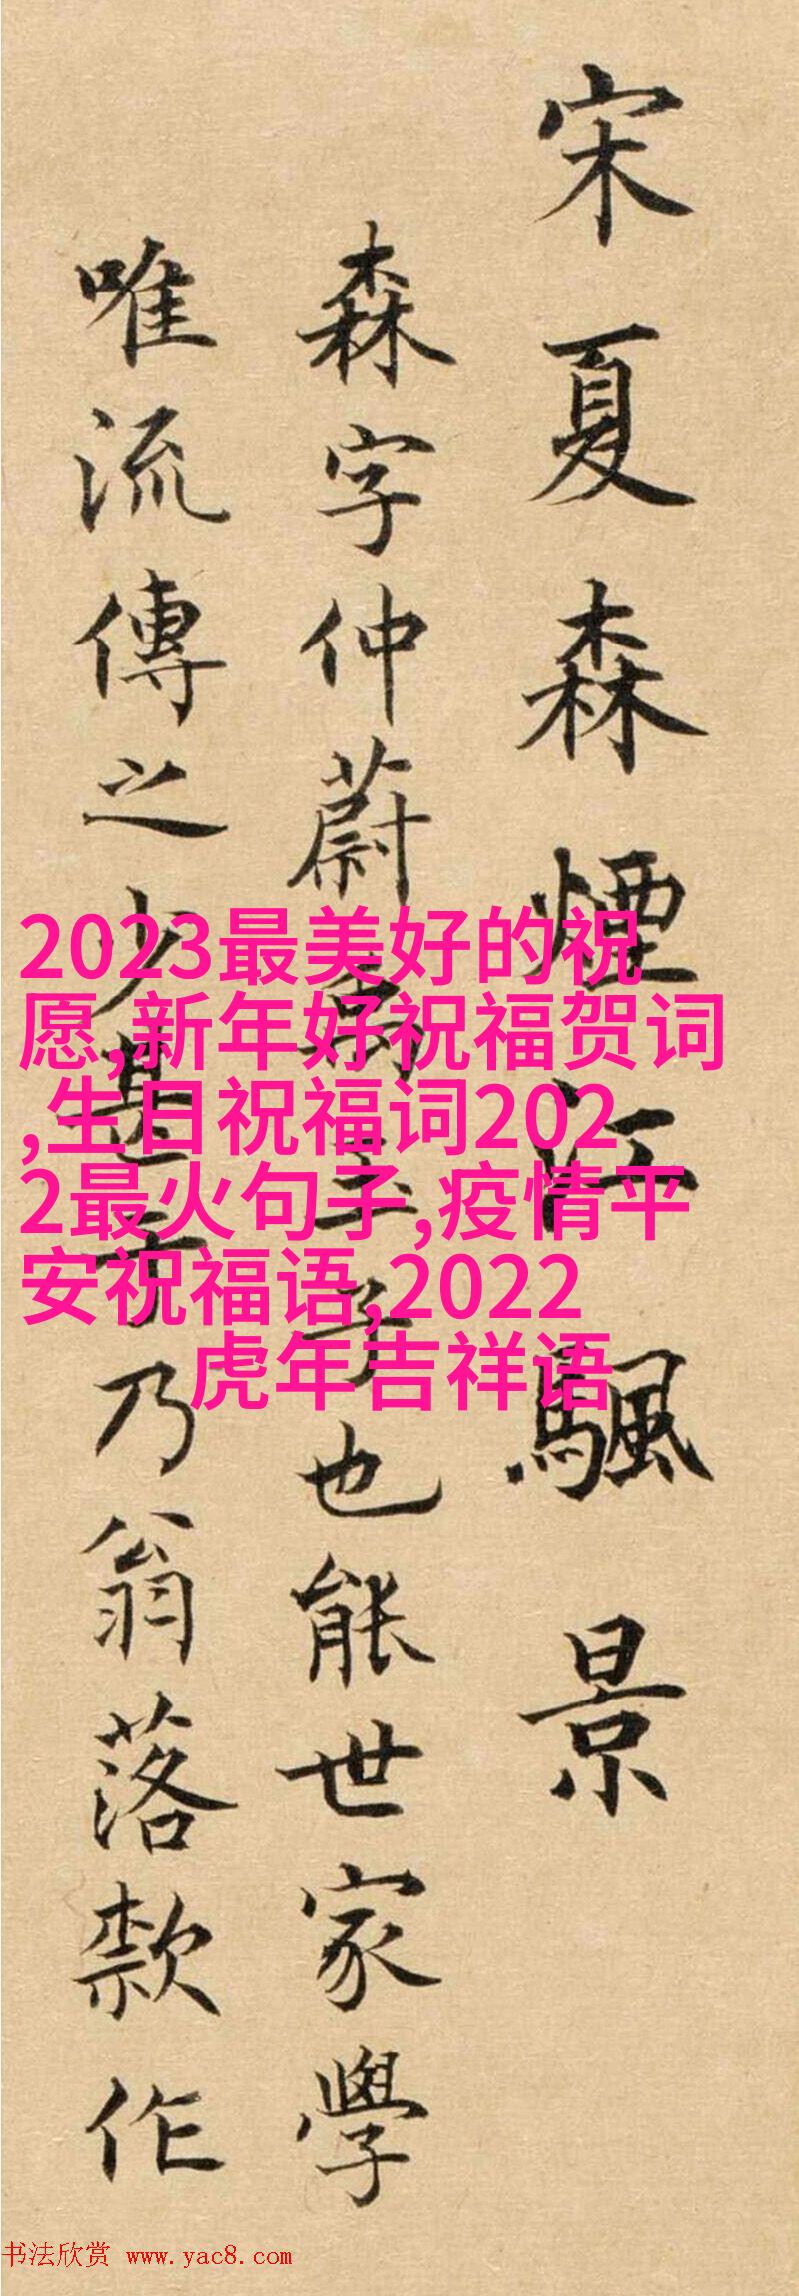 宋夏森煙江颿景
森字仲蔚禹玉子也能世家學
唯流傳之少甚于乃翁落款作
2023最美好的祝
愿,新年好祝福贺词
,生日祝福词202
2最火句子,疫情平
安祝福语,2022
虎年吉祥语
书法欣赏 www.yac8.com